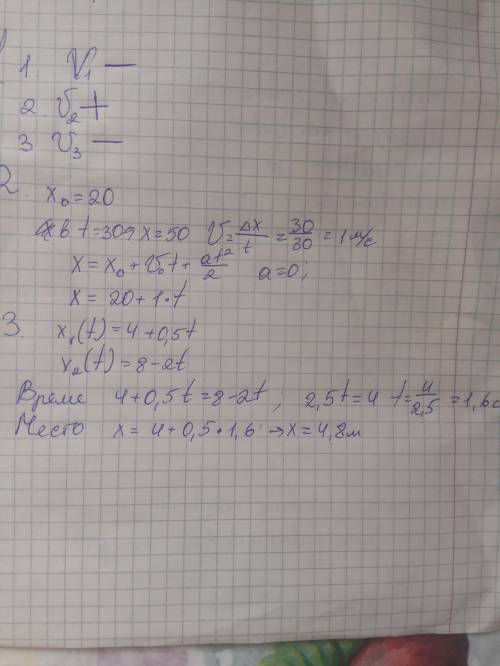 1. V₁ —
2. V₂ +
3 V₃ —
2. x₀ = 20
в t=30 x=50 V = Δx/t = 30/30 = 1 м/с
x = x₀ + V₀t + at²/2 a=0;
x = 20 + 1·t
3. x₁(t) = 4 + 0,5t
x₂(t) = 8 - 2t
Време 4 + 0,5t = 8 - 2t , 2,5t = 4 t = 4/2,5 = 1,6с
Место x = 4 + 0,5 · 1,6 → x = 4,8м